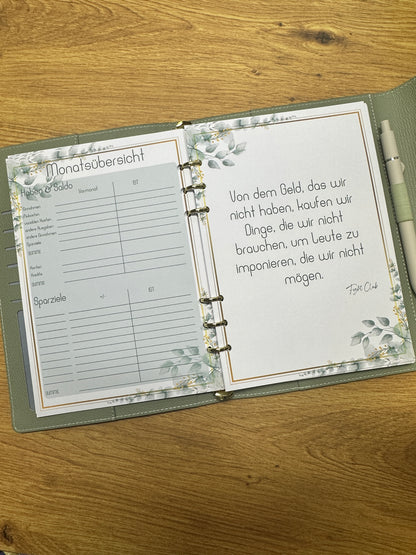 Monatsübersicht
Haben & Saldo
Vormonat
IST
Einnahmen
Fixkosten
variablen Kosten
andere Ausgaben
andere Einnahmen
Sparziele
SUMME
Konten
Kredite
SUMME
Sparziele
+/-
IST
SUMME
Von dem Geld, das wir
nicht haben, kaufen wir
Dinge, die wir nicht
brauchen, um Leute zu
imponieren, die wir nicht
mögen.
Fight Club